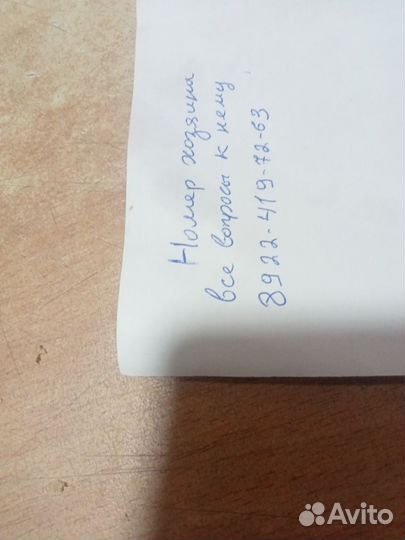 Номер хозяина
все вопросы к нему
8922-419-72-63
Avito